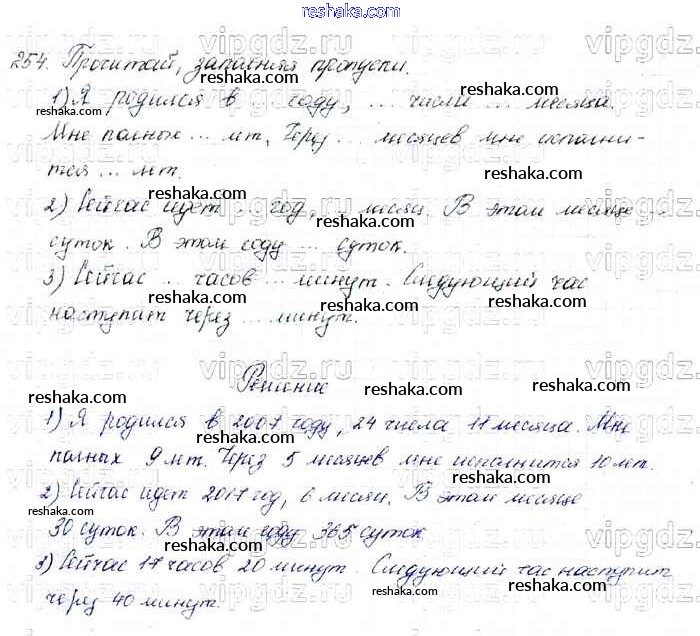 reshaka.com
254. Прочитай, заполняя пропуски.
1) Я родился в ... году, ... числа ... месяца.
Мне полных ... лет. Через ... месяцев мне исполни-
тся ... лет.
2) Сейчас идет ... год, ... месяц. В этом месяце ...
суток. В этом году ... суток.
3) Сейчас ... часов ... минут. Следующий час
наступает через ... минут.
Решение
1) Я родился в 2007 году, 24 числа 11 месяца. Мне
полных 9 лет. Через 5 месяцев мне исполнится 10 лет.
2) Сейчас идет 2017 год, 6 месяц. В этом месяце
30 суток. В этом году 365 суток
3) Сейчас 17 часов 20 минут. Следующий час наступит
через 40 минут.